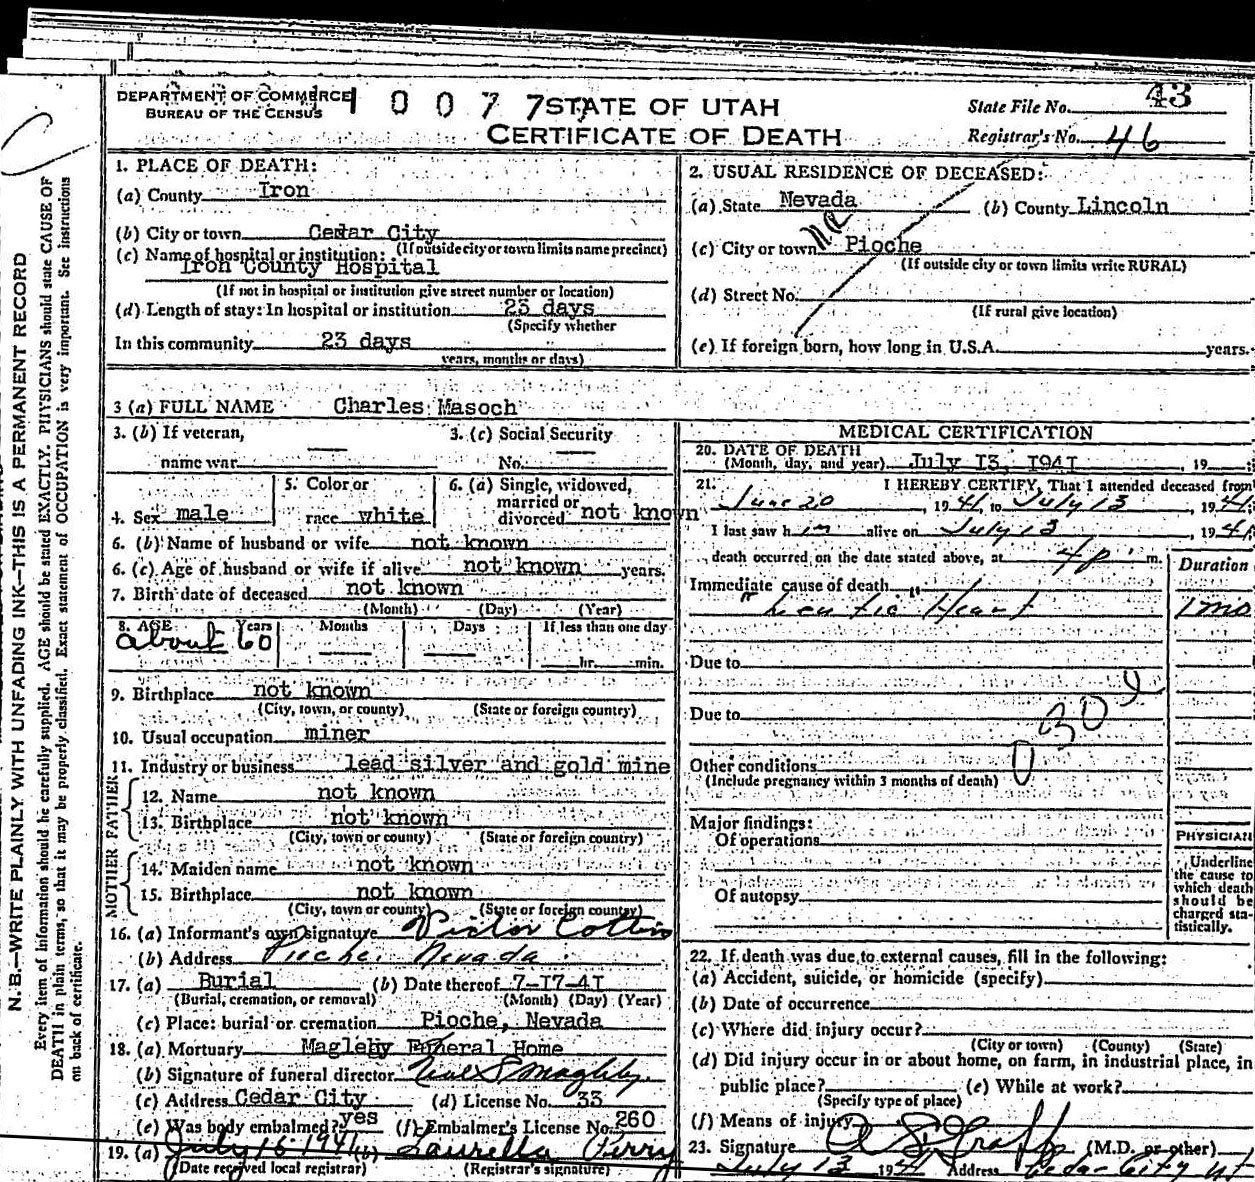 DEPARTMENT OF COMMERCE
BUREAU OF THE CENSUS
1 0 0 7 7
STATE OF UTAH
CERTIFICATE OF DEATH
State File No. 43
Registrar's No. 46
N. B.—WRITE PLAINLY WITH UNFADING INK—THIS IS A PERMANENT RECORD
Every item of information should be carefully supplied. AGE should be stated EXACTLY. PHYSICIANS should state CAUSE OF
DEATH in plain terms, so that it may be properly classified. Exact statement of OCCUPATION is very important. See instructions
on back of certificate.
1. PLACE OF DEATH:
(a) County Iron
(b) City or town Cedar City
(If outside city or town limits name precinct)
(c) Name of hospital or institution:
Iron County Hospital
(If not in hospital or institution give street number or location)
(d) Length of stay: In hospital or institution 23 days
(Specify whether
In this community 23 days
years, months or days)
2. USUAL RESIDENCE OF DECEASED:
(a) State Nevada (b) County Lincoln
(c) City or town Pioche
(If outside city or town limits write RURAL)
(d) Street No.
(If rural give location)
(e) If foreign born, how long in U.S.A. years.
3 (a) FULL NAME Charles Masoch
3. (b) If veteran,
name war —
3. (c) Social Security
No. —
4. Sex male
5. Color or
race white
6. (a) Single, widowed,
married or
divorced not known
6. (b) Name of husband or wife not known
6. (c) Age of husband or wife if alive not known years.
7. Birth date of deceased not known
(Month) (Day) (Year)
8. AGE Years Months Days If less than one day
about 60 — — hr. min.
9. Birthplace not known
(City, town, or county) (State or foreign country)
10. Usual occupation miner
11. Industry or business lead silver and gold mine
FATHER
12. Name not known
13. Birthplace not known
(City, town or county) (State or foreign country)
MOTHER
14. Maiden name not known
15. Birthplace not known
(City, town or county) (State or foreign country)
16. (a) Informant's own signature Victor Cottino
(b) Address Pioche, Nevada
17. (a) Burial (b) Date thereof 7-17-41
(Burial, cremation, or removal) (Month) (Day) (Year)
(c) Place: burial or cremation Pioche, Nevada
18. (a) Mortuary Magleby Funeral Home
(b) Signature of funeral director Neal S Magleby
(c) Address Cedar City (d) License No. 33
(e) Was body embalmed? yes (f) Embalmer's License No. 260
19. (a) July 16 1941 (b) Laurella Perry
(Date received local registrar) (Registrar's signature)
MEDICAL CERTIFICATION
20. DATE OF DEATH
(Month, day, and year) July 13, 1941, 19
21. I HEREBY CERTIFY, That I attended deceased from
June 20, 1941, to July 13, 1941;
I last saw him alive on July 13 1941;
death occurred on the date stated above, at 4 p m.
Duration
Immediate cause of death
Heart 1 mo
Due to
Due to
Other conditions
(Include pregnancy within 3 months of death)
Major findings:
Of operations
Of autopsy
PHYSICIAN
Underline
the cause to
which death
should be
charged sta-
tistically.
22. If death was due to external causes, fill in the following:
(a) Accident, suicide, or homicide (specify)
(b) Date of occurrence
(c) Where did injury occur?
(City or town) (County) (State)
(d) Did injury occur in or about home, on farm, in industrial place, in
public place? (e) While at work?
(Specify type of place)
(f) Means of injury
23. Signature (M.D. or other)
July 13 1941 Address Cedar City Ut